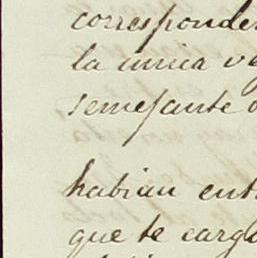 corresponder
la unica ve
semejante
habian ent
que te carg